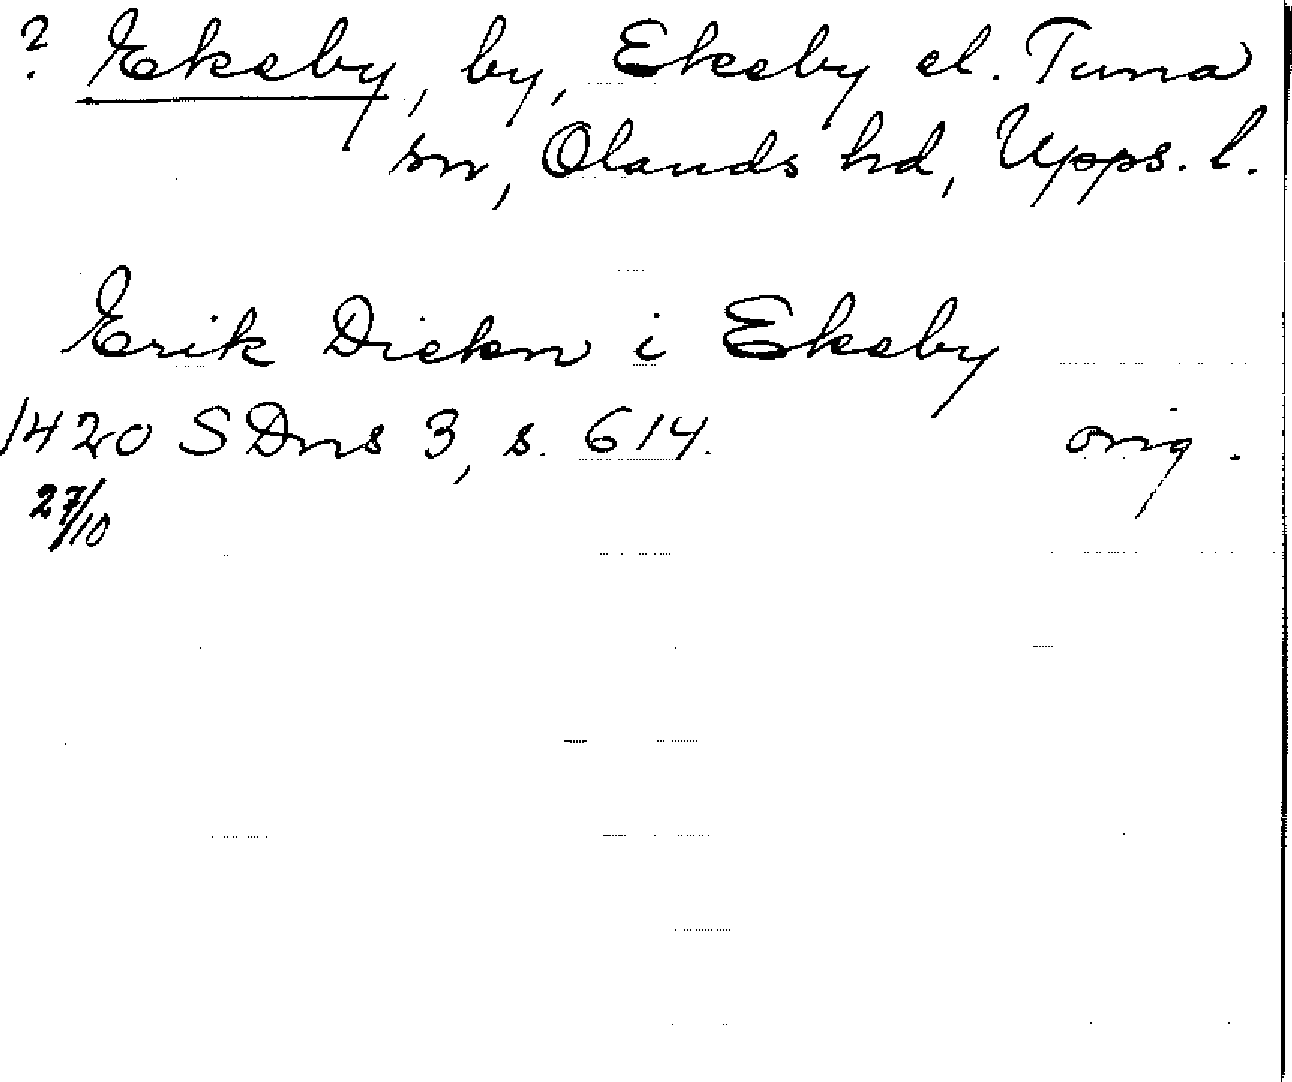 ? Ekeby, by, Ekeby el. Tuna
sn, Olands hd, Upps. l.
Erik Diekn i Ekeby
1420 SDns 3, s. 614. orig.
27/10